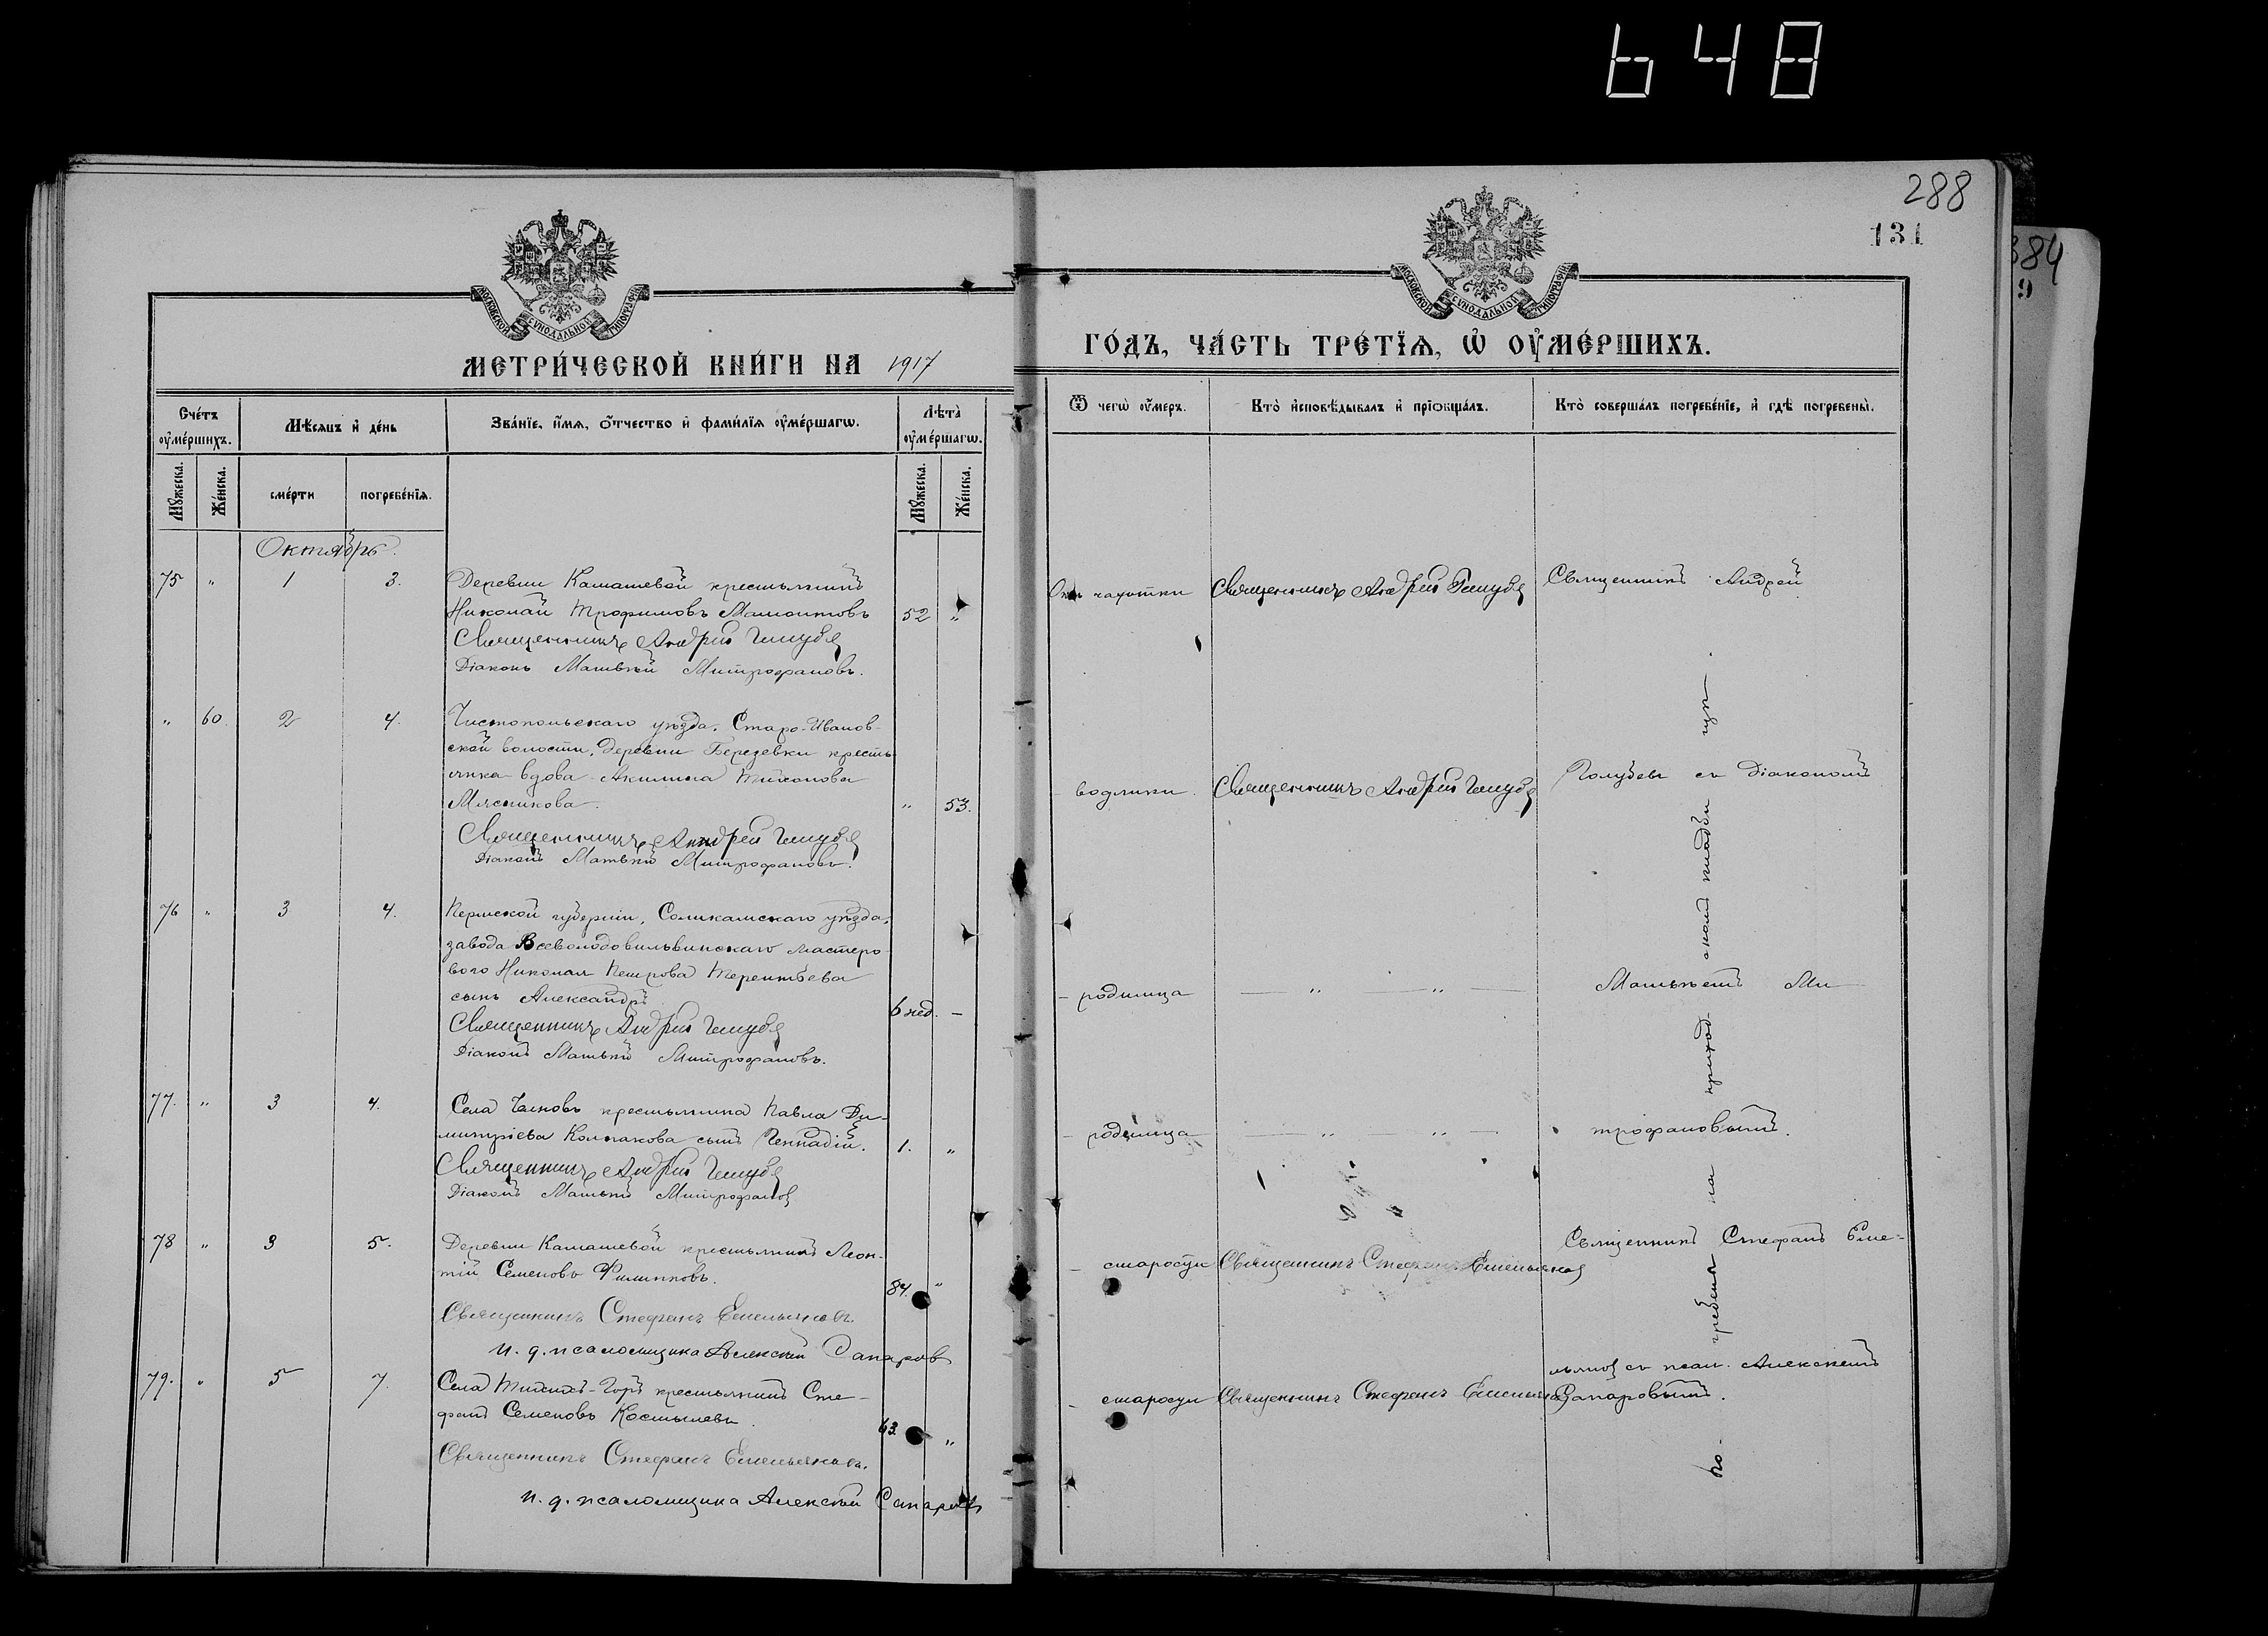 648
288
131
384
9
МОСКОВСКОЙ СУНОДАЛЬНОЙ ТИПОГРАФІИ
МОСКОВСКОЙ СУНОДАЛЬНОЙ ТИПОГРАФІИ
МЕТРИ́ЧЕСКОЙ КНИ́ГИ НА 1917
ГО́ДЪ, ЧА́СТЬ ТРЕ́ТЇѦ, Ѡ҆ ОУ҆МЕ́РШИХЪ.
Сче́тъ оу҆ме́ршихъ.
Мѣ́сѧцъ и҆ де́нь
Зва́нїе, и҆́мѧ, ѻ҆́тчество и҆ фами́лїѧ оу҆ме́ршагѡ.
Лѣ́та оу҆ме́ршагѡ.
Ѿ чегѡ̀ оу҆́меръ.
Кто̀ и҆сповѣ́дывалъ и҆ прїѡбща́лъ.
Кто̀ соверша́лъ погребе́нїе, и҆ гдѣ̀ погребены̀.
Мꙋ́жеска.
Же́нска.
сме́рти
погребе́нїѧ.
Мꙋ́жеска.
Же́нска.
Октябрь.
75 " 1 3. Деревни Камашевой крестьянинъ
Николай Трофимовъ Мамонтовъ 52 "
Священникъ Андрей Голубе
Діаконъ Матвѣй Митрофановъ.
Отъ чахотки Священникъ Андрей Голубе Священникъ Андрей
" 60 2 4. Чистопольскаго уѣзда, Старо-Иванов-
ской волости, деревни Березевки кресть-
янка вдова Акилина Тихонова
Мясникова. " 53.
Священникъ Андрей Голубе
Діаконъ Матвѣй Митрофановъ.
водянки. Священникъ Андрей Голубе Голубевъ съ діакономъ
76 " 3 4. Пермской губерніи, Соликамскаго уѣзда,
завода Всеволодовильвинскаго мастеро-
вого Николая Петрова Терентьева
сынъ Александръ 6 нед. -
Священникъ Андрей Голубе
Діаконъ Матвѣй Митрофановъ.
- родимца " " Матвѣемъ Ми-
77. " 3 4. Села крестьянина Павла Ди-
митріева Колпакова сынъ Геннадій. 1. "
Священникъ Андрей Голубе
Діаконъ Матвѣй Митрофанов
- родимца " " трофановымъ.
78 " 3 5. Деревни Камашевой крестьянинъ Леон-
тій Семеновъ Филипповъ. 84. "
Священникъ Стефанъ Емельяновъ.
и. д. псаломщика Алексѣй Сапаров
- старости Священникъ Стефанъ Емельянов Священникъ Стефанъ Еме-
79. " 5 7. Села Тихихъ-Горъ крестьянинъ Сте-
фанъ Семеновъ Костылевъ. 63. "
Священникъ Стефанъ Емельяновъ.
и. д. псаломщика Алексѣй Сапаровъ
- старости Священникъ Стефанъ Емельянов льянов съ псал. Алексѣемъ
Сапаровымъ.
По- гребены на приход- скомъ кладби- щѣ.